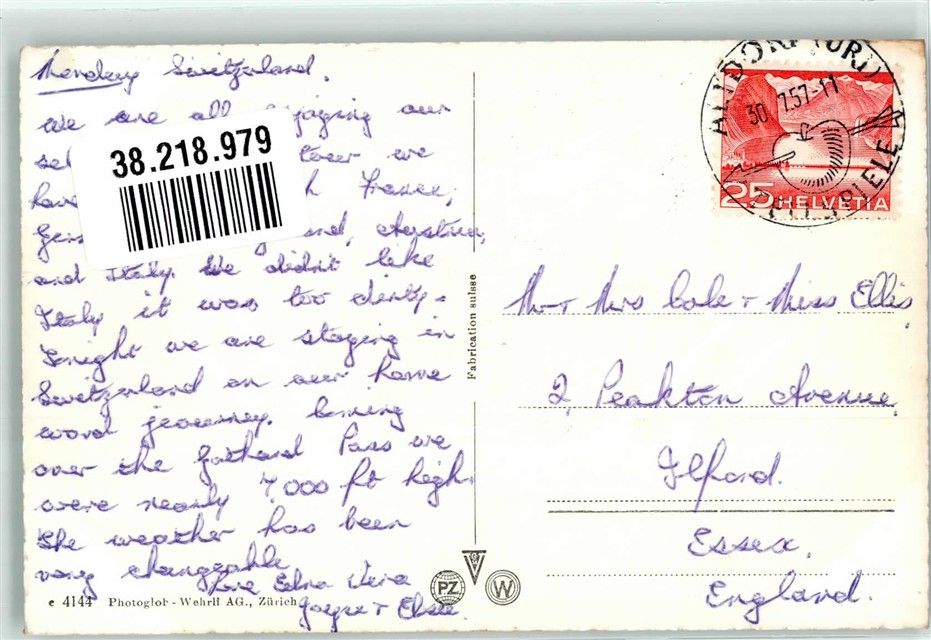 Monday Switzerland.
We are all our
we
France,
Austria,
and Italy. We didnt like
Italy it was too dirty.
Tonight we are staying in
Switzerland on our home
word journey. Coming
over the Gothard Pass we
were nearly 7,000 ft high.
The weather has been
very changeable
Love Edna Vera
Joyce + Elsie.
38.218.979
e 4144 Photoglob-Wehrli AG., Zürich
Fabrication suisse
PZ
W
ALTDORF (URI)
30. 7.57-11
TELLSPIELE
25 HELVETIA
Mr + Mrs Cole + Miss Ellis,
2, Peakton Avenue,
Ilford.
Essex,
England.